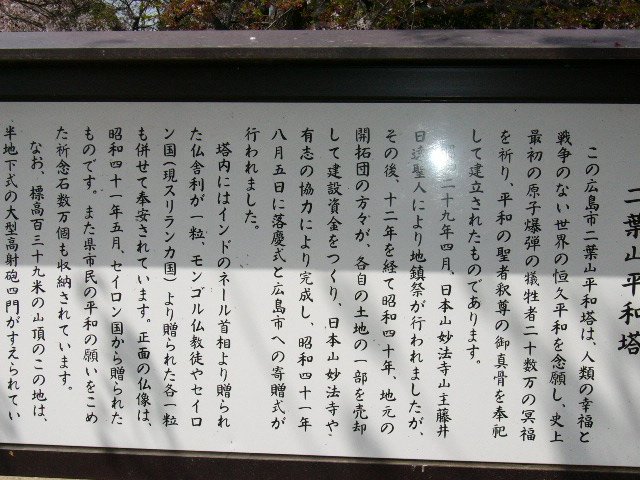 二葉山平和塔
この広島市二葉山平和塔は、人類の幸福と
戦争のない世界の恒久平和を念願し、史上
最初の原子爆弾の犠牲者二十数万の冥福
を祈り、平和の聖者釈尊の御真骨を奉祀
して建立されたものであります。
二十九年四月、日本山妙法寺山主藤井
日達聖人により地鎮祭が行われましたが、
その後、十二年を経て昭和四十年、地元の
開拓団の方々が、各自の土地の一部を売却
して建設資金をつくり、日本山妙法寺や
有志の協力により完成し、昭和四十一年
八月五日に落慶式と広島市への寄贈式が
行われました。
塔内にはインドのネール首相より贈られ
た仏舎利が一粒、モンゴル仏教徒やセイロ
ン国(現スリランカ国)より贈られた各一粒
も併せて奉安されています。正面の仏像は、
昭和四十一年五月、セイロン国から贈られた
ものです。また県市民の平和の願いをこめ
た祈念石数万個も収納されています。
なお、標高百三十九米の山頂のこの地は、
半地下式の大型高射砲四門がすえられてい